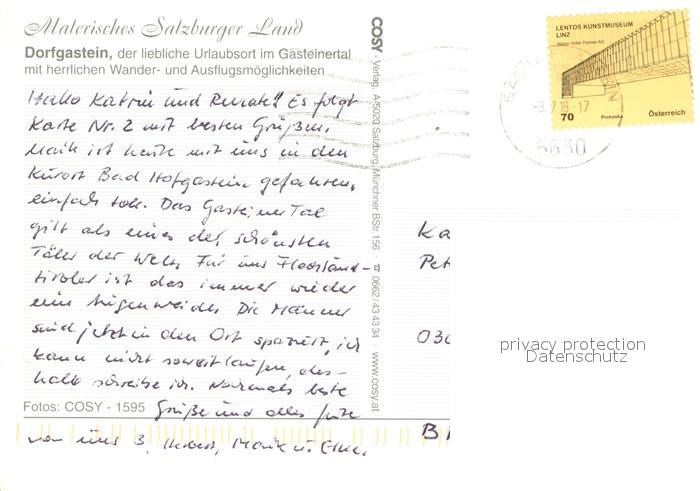 Malerisches Salzburger Land
Dorfgastein, der liebliche Urlaubsort im Gasteinertal
mit herrlichen Wander- und Ausflugsmöglichkeiten
Hallo Katrin und Renate! Es folgt
Karte Nr. 2 mit besten Grüßen.
Maik ist heute mit uns in den
Kurort Bad Hofgastein gefahren,
einfach toll. Das Gasteiner Tal
gilt als eines der schönsten
Täler der Welt. Für uns Flachland-
tiroler ist das immer wieder
eine Augenweide. Die Männer
sind jetzt in den Ort spaziert, ich
kann nicht soweit laufen, des-
halb schreibe ich. Nochmals beste
Grüße und alles Gute
von uns 3, Maik u.
Fotos: COSY - 1595
COSY - Verlag, A-5020 Salzburg, Münchner BStr. 156 · ☎ 0662/43 43 34 · www.cosy.at
LENTOS KUNSTMUSEUM
LINZ
Weber Hofer Partner AG
70
Prohaska
Österreich
7.16-17
5630
Ka
Pet
030
privacy protection
Datenschutz